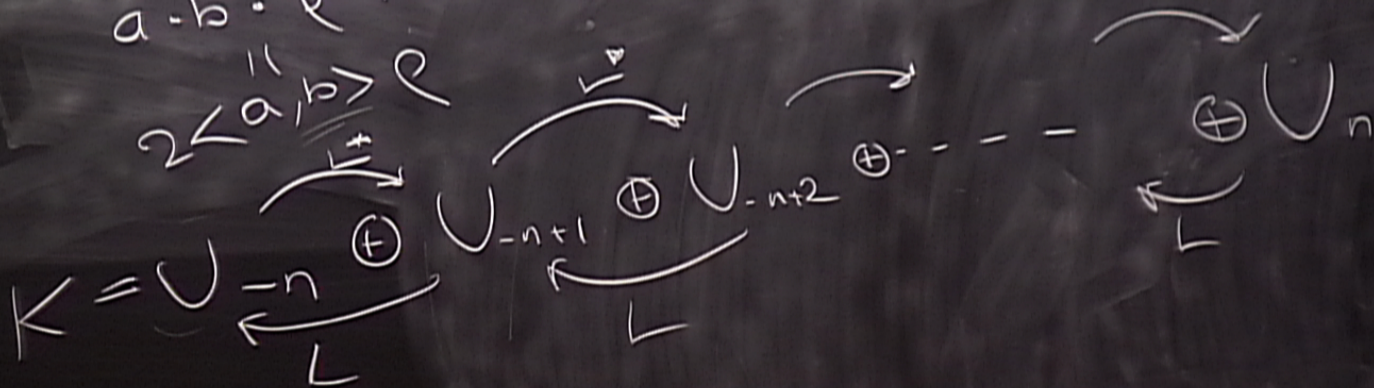 a · b ·
||
2<a,b> e
K = U_{-n} ⊕ U_{-n+1} ⊕ U_{-n+2} ⊕ - - - - ⊕ U_n
L* L*
L L L